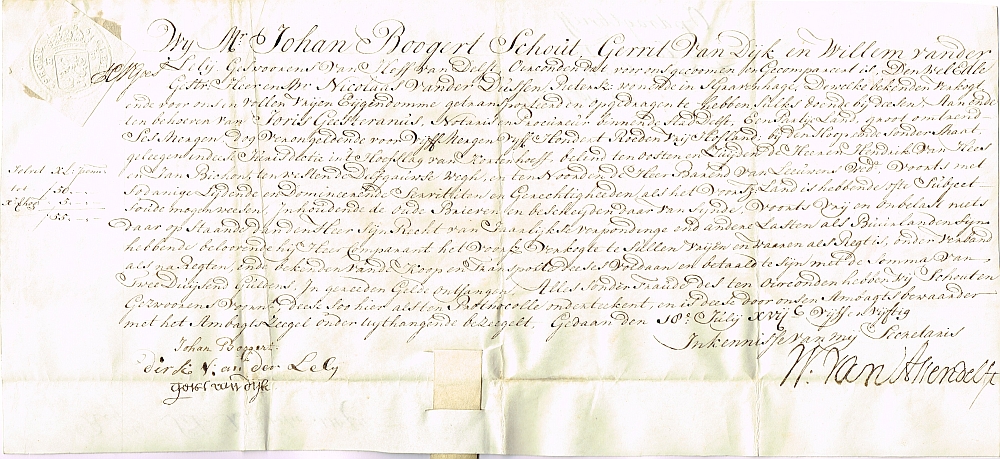 Wij Mr. Johan Boogert Schout, Gerrit Van Dijk en Willem vander
Lelij Geswoorens Van Hoff van Delft, Oirconden dat voor ons gecoomen en Gecompareert is, Den Wel Edle
Gestr. Heer en Mr. Nicolaas Vander Dussen Pietersz. wonende in SGravenhage, Dewelke bekenden verkogt
ende voor ons in vollen vrijen Eijgendomme getransporteerd en opgedragen te hebben sulks doende bij deesen Aan ende
ten behoeven van Joris Geesteranus, Notaris en Procureur binnen de Stad Delft Een Partije Land, groot omtrend
Ses Morgen, Dog Verongeldende voor Vijff Morgen Vijff Hondert Roeden Vrij Hofland, bij den Hoop ende Sonder Maat,
geleegen in deese Jurisdictie int Hoefslag van belend ten Oosten en Zuijden de Heeren Hendrick van Hees
en Jan ten Westen de wegh, en ten Noorden de Heer Barend van Leeuwens Wed. Voorts met
Sodanige Lijdende en Domineerende Servituten en Geregtigheeden, als het Voorsz. Land is hebbende ofte Subject
soude mogen weesen, Inhoudende de oude Brieven en bescheijden daar van Zijnde, Voorts Vrij en onbelast mets
daar op Staande dan den Heer Sijn Recht van Jaarlijkse verpondinge end andere Lasten als Buurlanden Sijn
hebbende beloovende hij Heer Comparant het Voorsz. verkogte te Sullen Vrijen en waaren als Regt is, onder Verband
als na Regten, ende bekende van de Koop en Transporte deeses Voldaan en betaald te Sijn met de Somma van
Twee Duijsend Guldens, In gereeden Gelde ontfangen, Alles Sonder fraude des ten oirconden hebben wij Schout en
Geswoorens Voornt. deese Soo hier als ten Prothocolle onderteekent, en is deese door onsen Ambagts bewaarder
met het Ambagts Zeegel onder uijthangende bezeegelt, Gedaan den 18e. Julij XVIJ C Vijff en Vijftig
In kennisse van mij Secretaris
Johan Boogert
dirk Van der Lely
gerrit van dijk
W: Van Assendelft